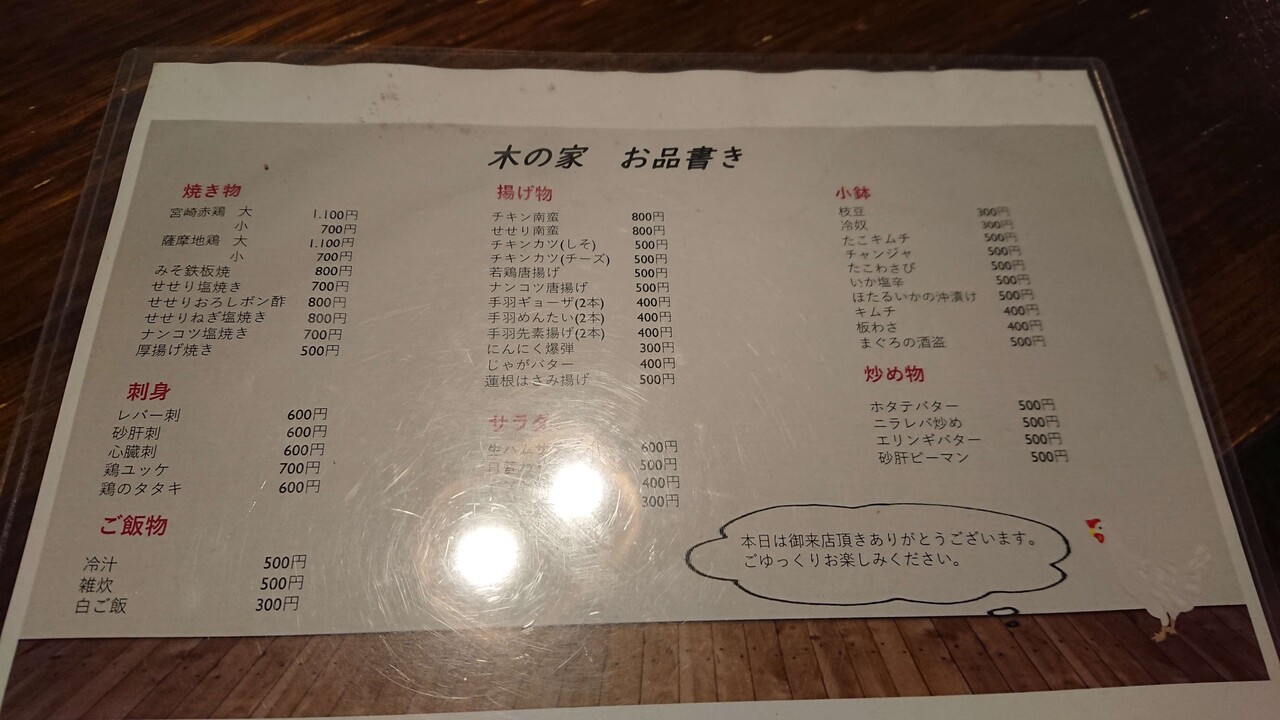 木の家 お品書き
焼き物
宮崎赤鶏 大 1.100円
小 700円
薩摩地鶏 大 1.100円
小 700円
みそ鉄板焼 800円
せせり塩焼き 700円
せせりおろしポン酢 800円
せせりねぎ塩焼き 800円
ナンコツ塩焼き 700円
厚揚げ焼き 500円
刺身
レバー刺 600円
砂肝刺 600円
心臓刺 600円
鶏ユッケ 700円
鶏のタタキ 600円
ご飯物
冷汁 500円
雑炊 500円
白ご飯 300円
揚げ物
チキン南蛮 800円
せせり南蛮 800円
チキンカツ(しそ) 500円
チキンカツ(チーズ) 500円
若鶏唐揚げ 500円
ナンコツ唐揚げ 500円
手羽ギョーザ(2本) 400円
手羽めんたい(2本) 400円
手羽先素揚げ(2本) 400円
にんにく爆弾 300円
じゃがバター 400円
蓮根はさみ揚げ 500円
サラダ
生ハムサ 600円
500円
400円
300円
小鉢
枝豆 300円
冷奴 300円
たこキムチ 500円
チャンジャ 500円
たこわさび 500円
いか塩辛 500円
ほたるいかの沖漬け 500円
キムチ 400円
板わさ 400円
まぐろの酒盗 500円
炒め物
ホタテバター 500円
ニラレバ炒め 500円
エリンギバター 500円
砂肝ピーマン 500円
本日は御来店頂きありがとうございます。
ごゆっくりお楽しみください。